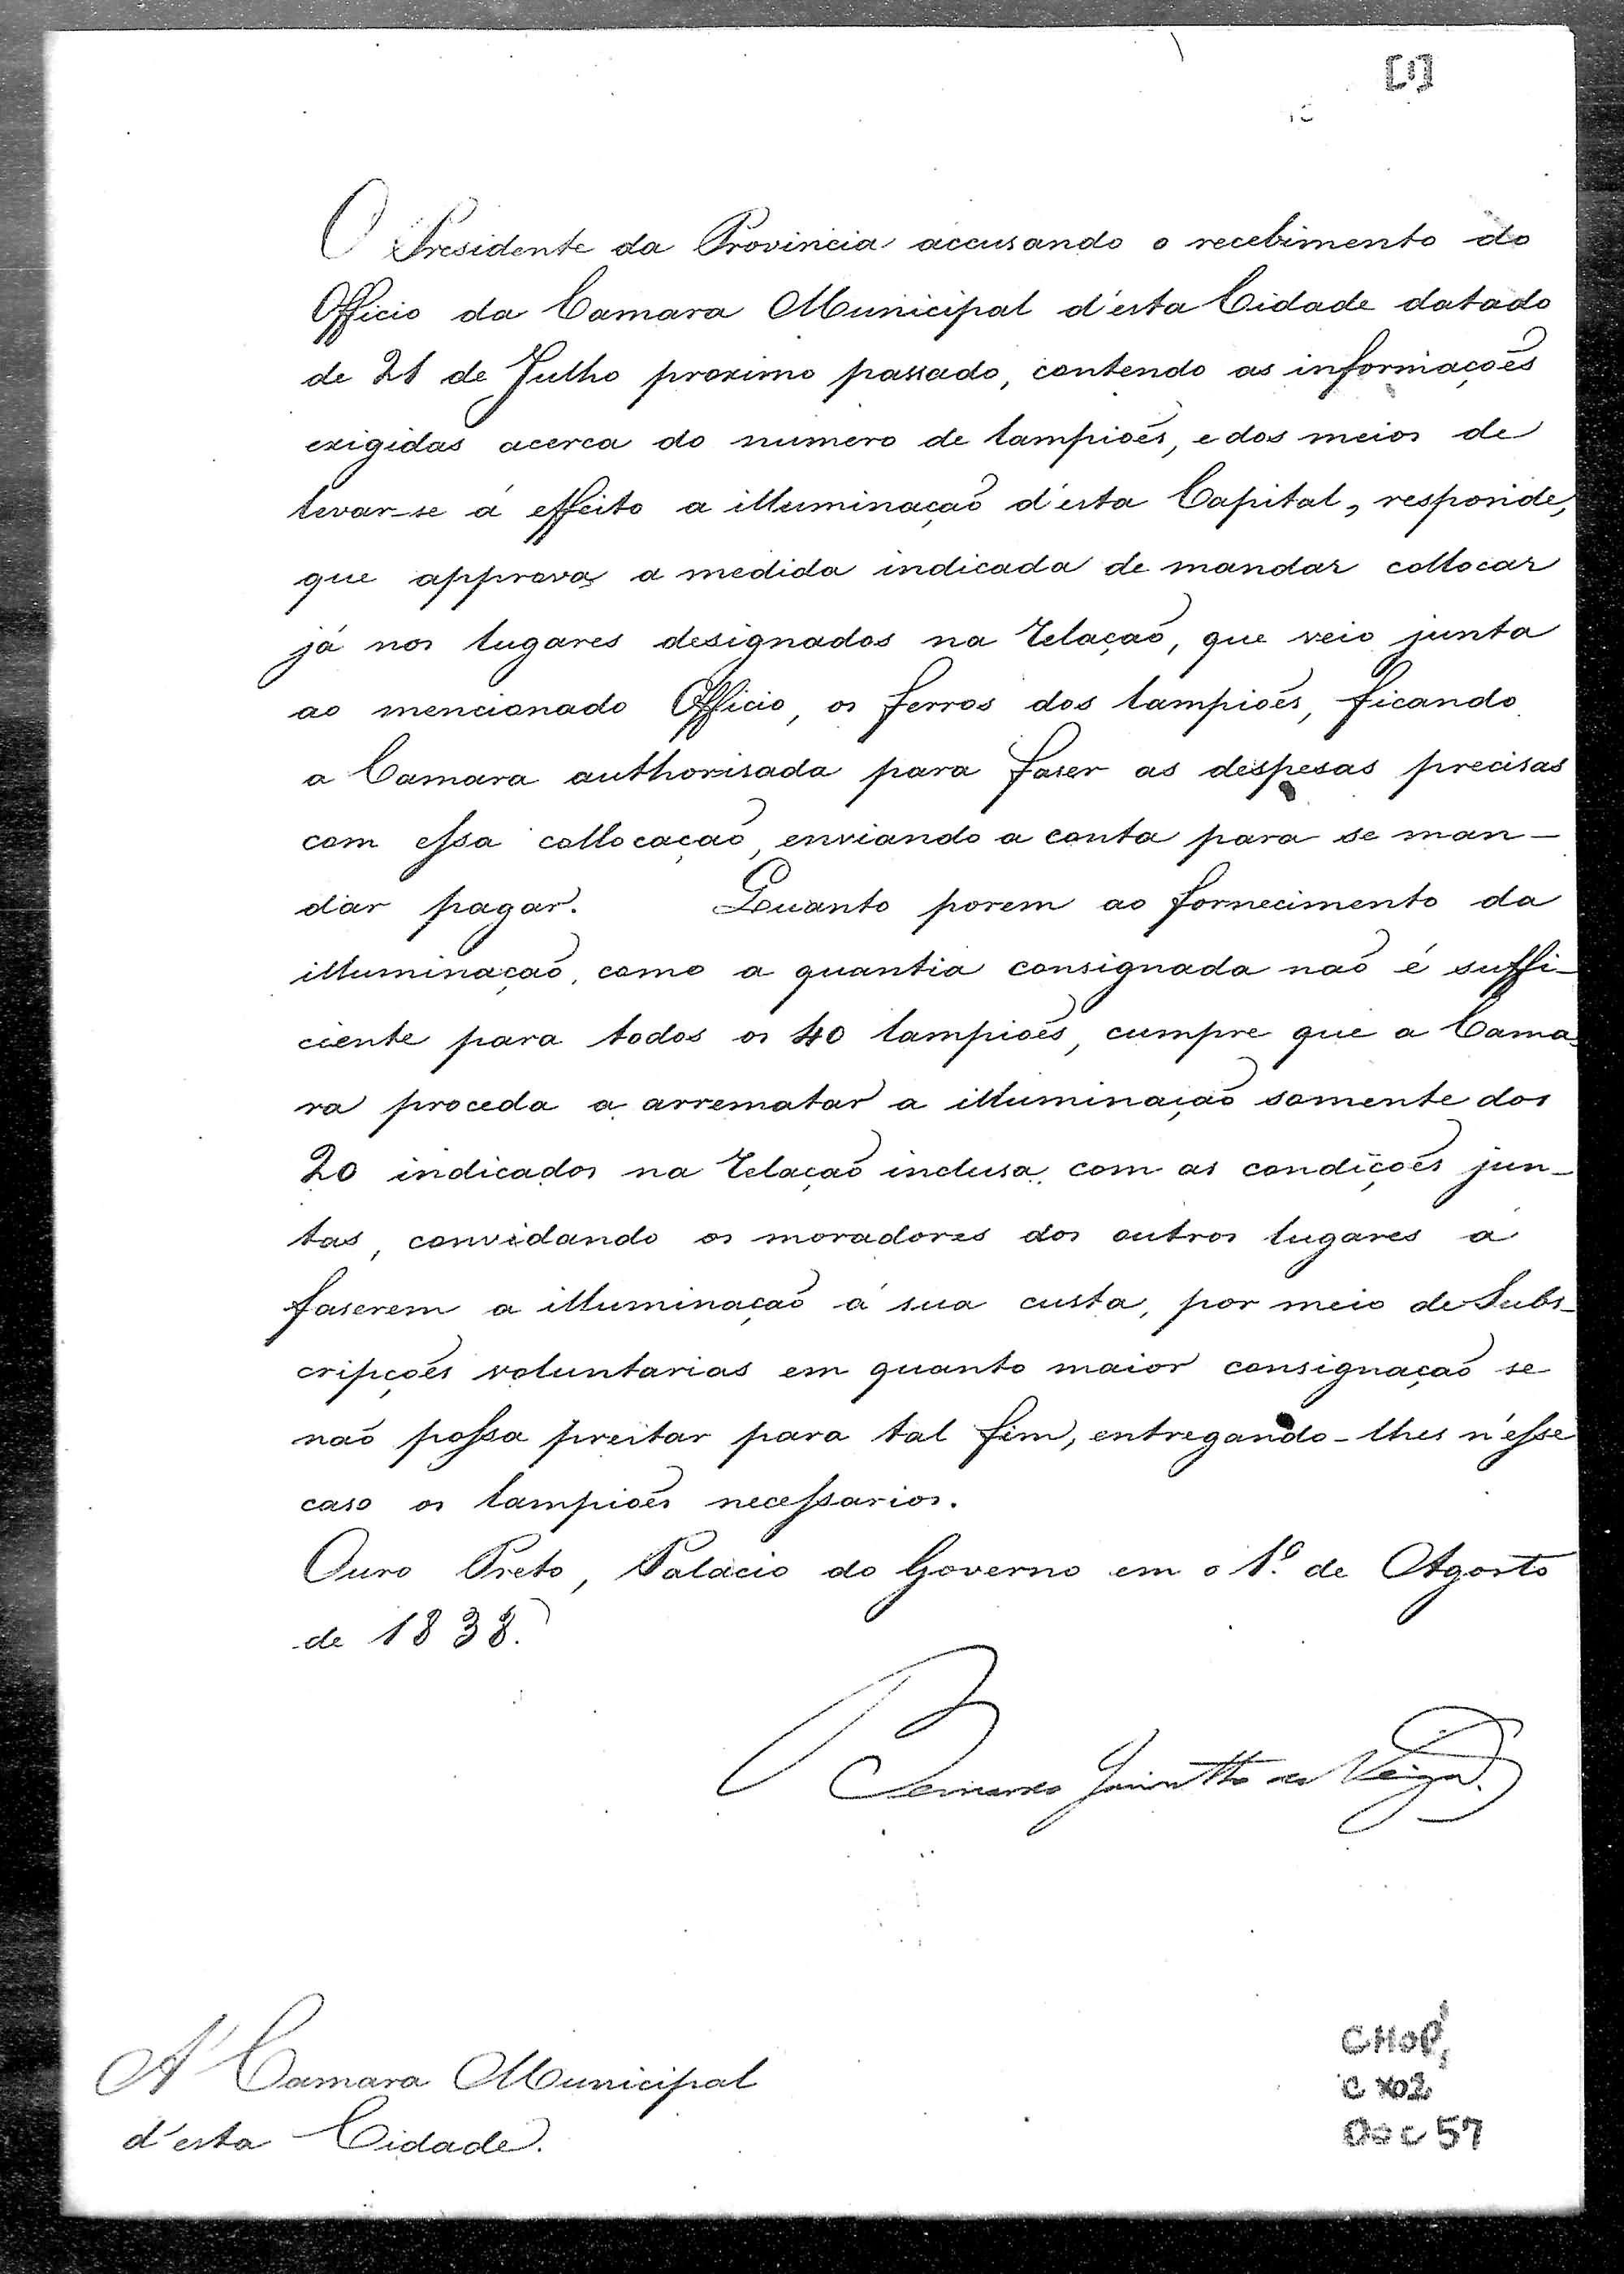 [1]
O Presidente da Provincia accusando o recebimento do
Officio da Camara Municipal d'esta Cidade datado
de 21 de Julho proximo passado, contendo as informaçoẽs
exigidas acerca do numero de lampioẽs, e dos meios de
levar-se á effeito a illuminaçaõ d'esta Capital, responde,
que approva a medida indicada de mandar collocar
já nos lugares designados na Relaçaõ, que veio junta
ao mencionado Officio, os ferros dos lampioẽs, ficando
a Camara authorisada para faser as despesas precisas
com essa collocaçaõ, enviando a conta para se man-
dar pagar. Quanto porem ao fornecimento da
illuminaçaõ, como a quantia consignada naõ é suffi-
ciente para todos os 40 lampioẽs, cumpre que a Cama-
ra proceda a arrematar a illuminaçaõ somente dos
20 indicados na Relaçaõ inclusa, com as condiçoẽs jun-
tas, convidando os moradores dos outros lugares á
faserem a illuminaçaõ á sua custa, por meio de Subs-
cripçoẽs voluntarias em quanto maior consignaçaõ se
naõ possa prestar para tal fim, entregando-lhes n'esse
caso os lampioẽs necessarios.
Ouro Preto, Palacio do Governo em o 1º. de Agosto
de 1838.
Bernardo Jacintho da Veiga.
A' Camara Municipal
d'esta Cidade.
CMOP,
CX02
DOC 57